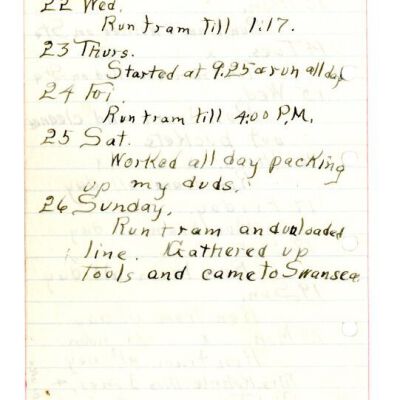 22 Wed.
Run tram till 1:17.
23 Thurs.
Started at 9.25 & run all day
24 Fri.
Run tram till 4:00 P.M.
25 Sat.
Worked all day packing
up my duds.
26 Sunday.
Run tram and unloaded
line. Gathered up
Tools and came to Swansea